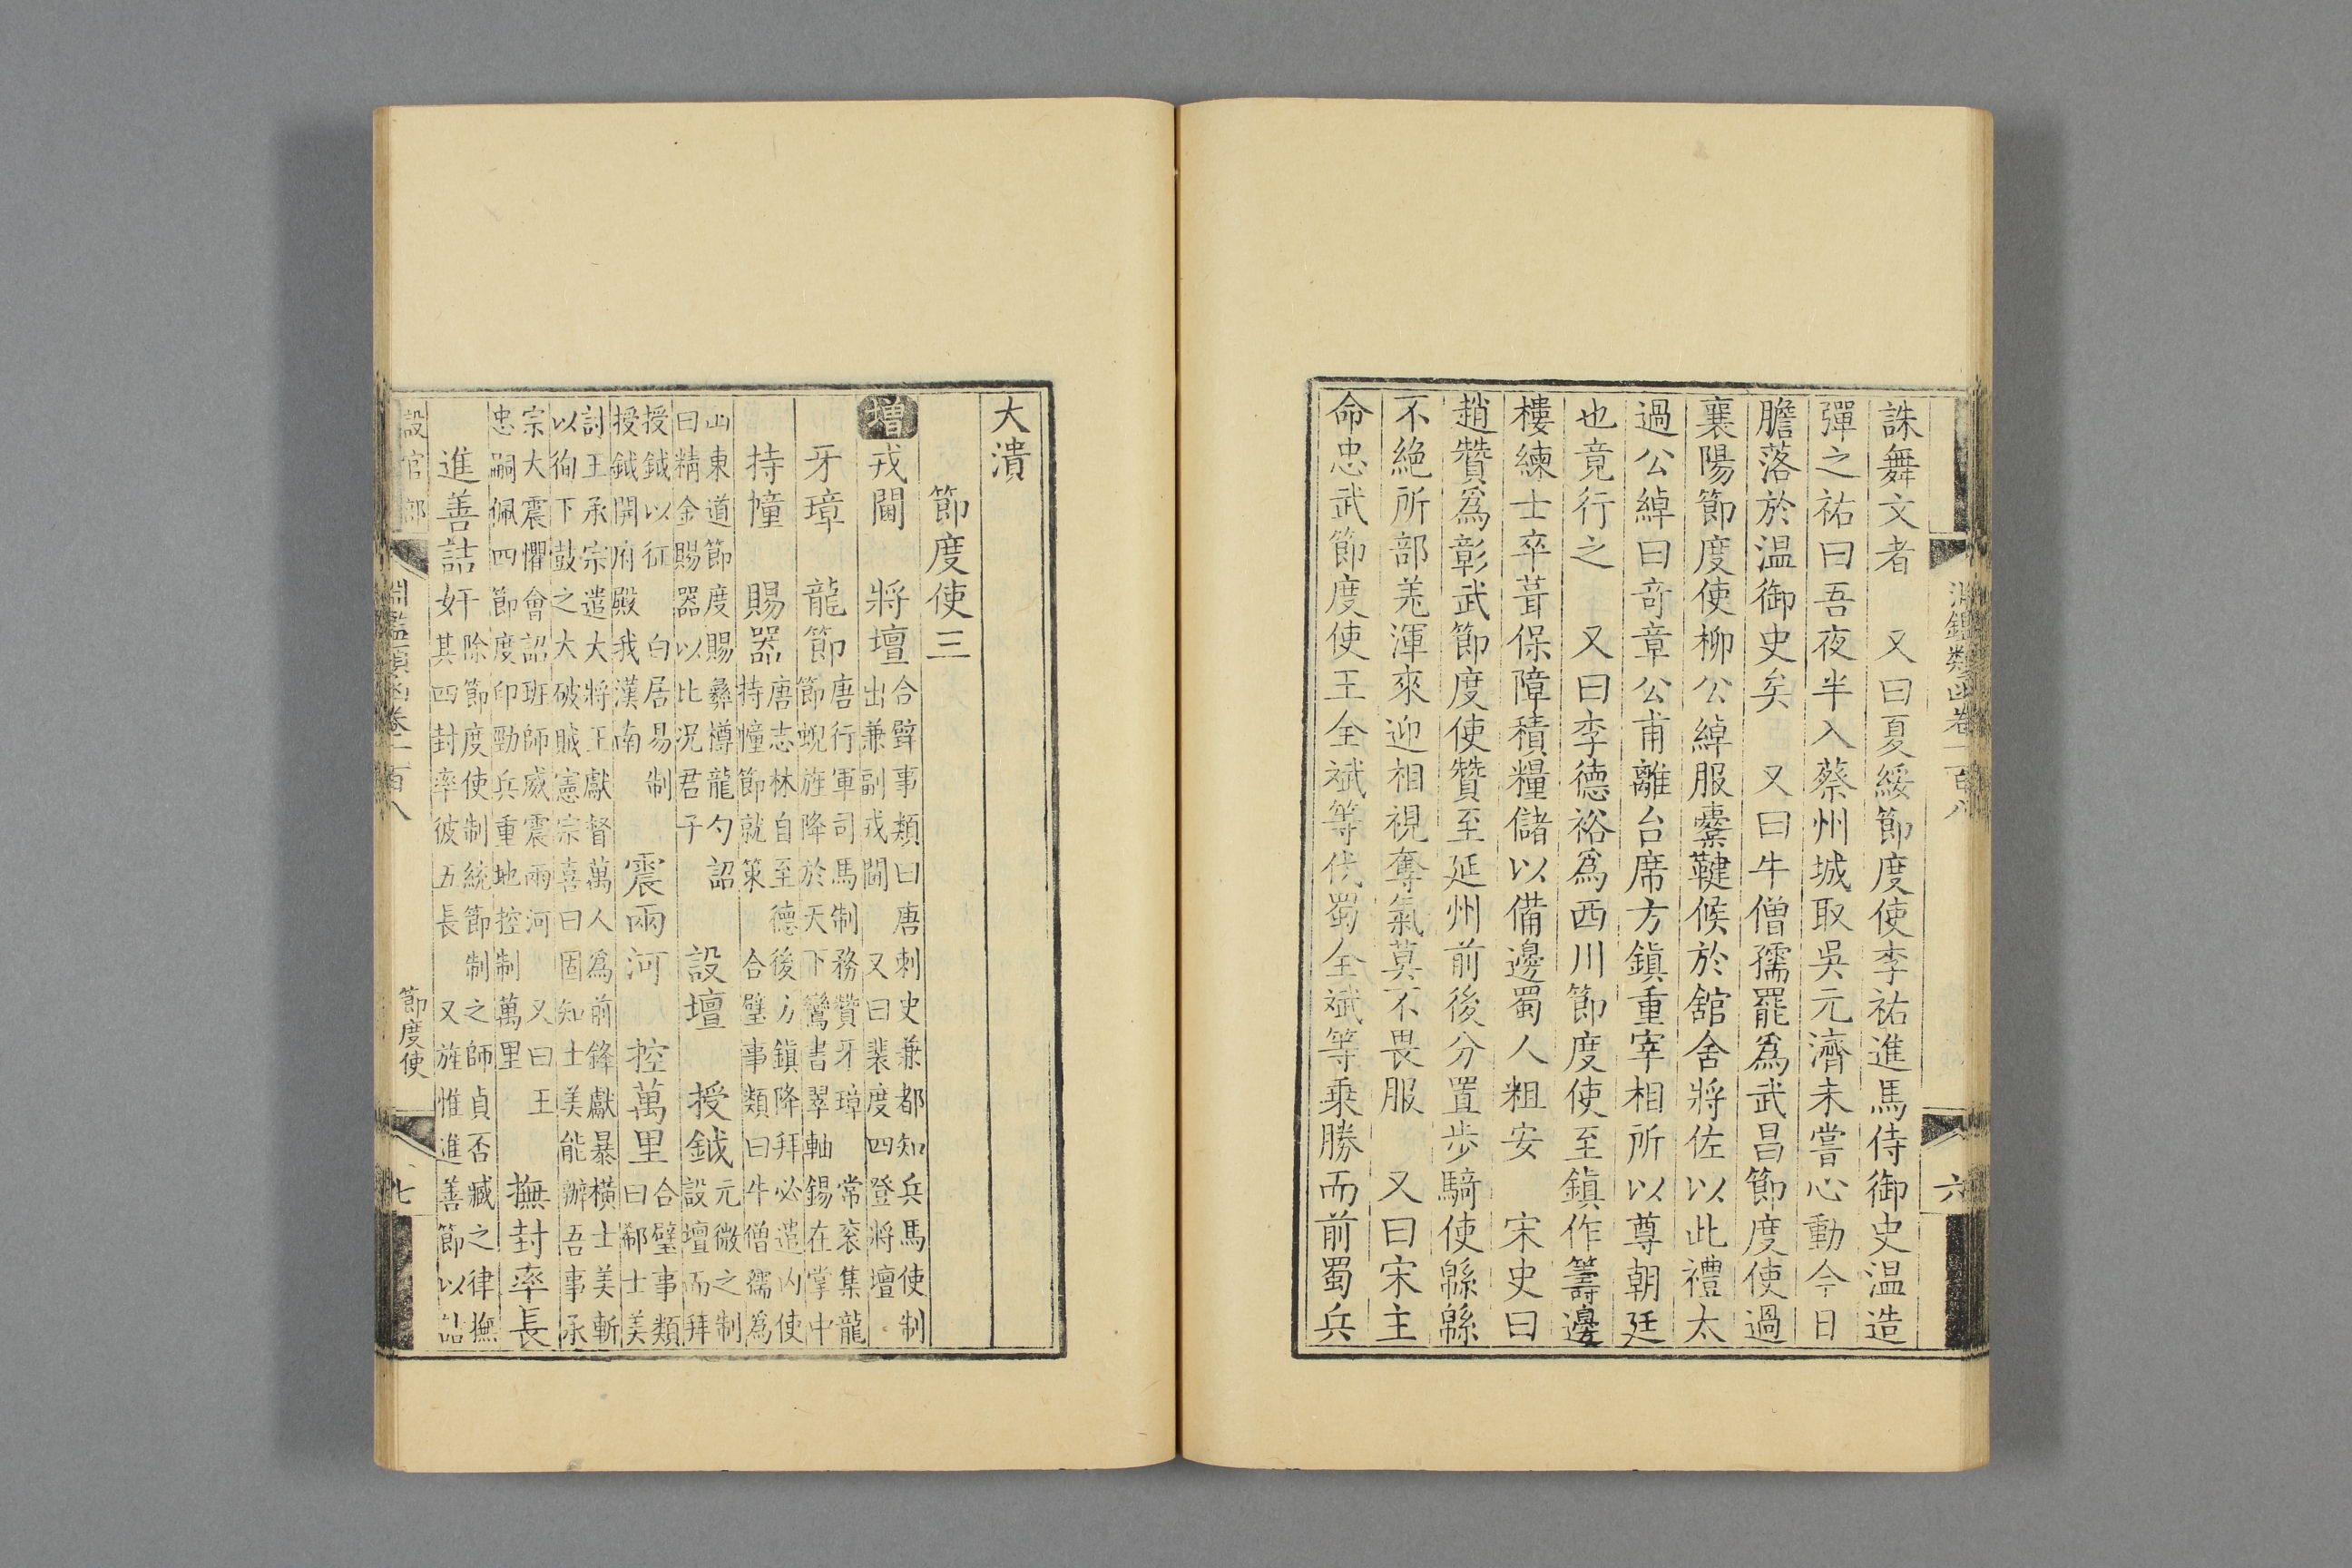 誅舞文者　又曰夏綏節度使李祐進馬侍御史温造
彈之祐曰吾夜半入蔡州城取吳元濟未嘗心動今日
膽落於温御史矣　又曰牛僧孺罷爲武昌節度使過
襄陽節度使柳公綽服櫜鞬候於舘舍將佐以此禮太
過公綽曰奇章公甫離台席方鎮重宰相所以尊朝廷
也竟行之　又曰李德裕爲西川節度使至鎮作籌邊
樓練士卒葺保障積糧儲以備邊蜀人粗安　宋史曰
趙贊爲彰武節度使贊至延州前後分置步騎使緜緜
不絶所部羌渾來迎相視奪氣莫不畏服　又曰宋主
命忠武節度使王全斌等伐蜀全斌等乗勝而前蜀兵
淵鑑類函卷一百八
六
大潰
節度使三
增戎閫　將壇合璧事類曰唐刺史兼都知兵馬使制
出兼副戎閫　又曰裴度四登將壇
牙璋　龍節唐行軍司馬制務贊牙璋　常衮集龍
節蜺旌降於天下鸞書翠軸錫在掌中
持幢　賜器唐志林自至德後方鎮降拜必遣内使
持幢節就策　合璧事類曰牛僧孺爲
山東道節度賜彝樽龍勺詔
曰精金賜器以比况君子　設壇　授鉞元微之制
設壇而拜
授鉞以征　白居易制
授鉞開府殿我漢南　震兩河　控萬里合璧事類
曰郗士美
討王承宗遣大將王獻督萬人爲前鋒獻暴橫士美斬
以徇下鼓之大破賊憲宗喜曰固知士美能辦吾事承
宗大震懼會詔班師威震兩河　又曰王
忠嗣佩四節度印勁兵重地控制萬里　撫封率長
進善詰奸除節度使制統節制之師貞否臧之律撫
其四封率彼五長　又旌惟進善節以詰
設官部
淵鑑類函卷一百八
節度使
七